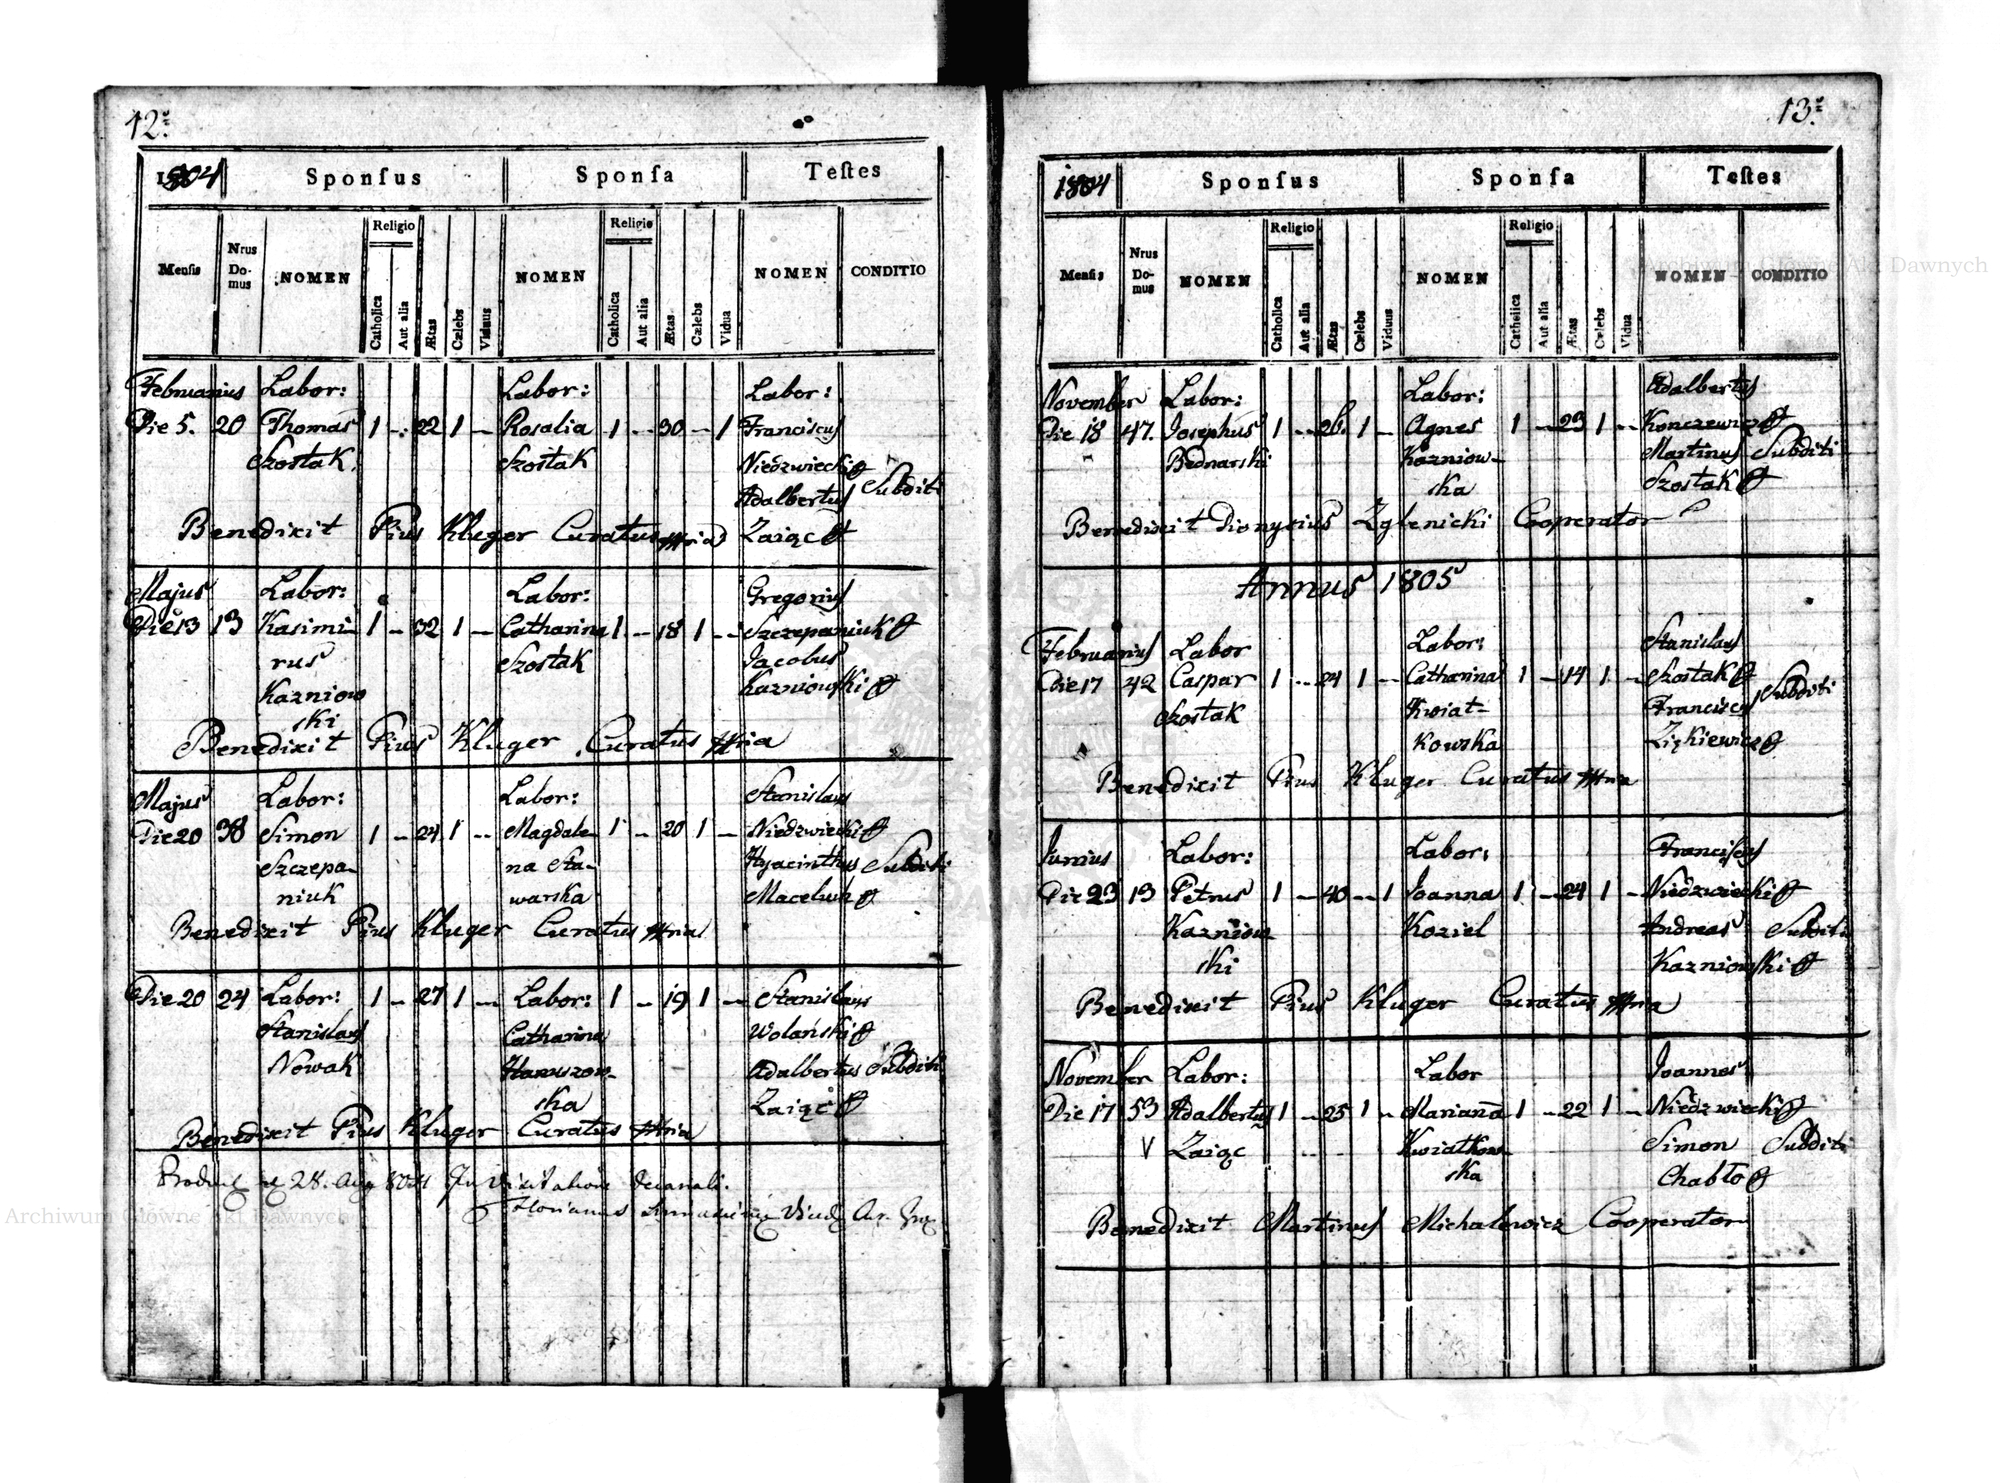 12
1804 Sponsus Sponsa Testes
Mensis Nrus Domus NOMEN Religio Catholica Aut alia Ætas Cælebs Viduus NOMEN Religio Catholica Aut alia Ætas Cælebs Vidua NOMEN CONDITIO
Februarius Labor: Labor: Labor:
Die 5. 20 Thomas 1 - 22 1 - Rosalia 1 - 30 - 1 Franciscus
Szostak Szostak Niedzwiecki
Adalbertus Subditi
Benedixit Pius Kluger Curatus Zaiąc
Majus Labor: Labor: Gregorius
Die 13 13 Kasimi- 1 - 32 1 - Catharina 1 - 18 1 - Szczepaniuk
rus Szostak Jacobus
Kazniow Kazniowski
ski
Benedixit Pius Kluger Curatus
Majus Labor: Labor: Stanislaus
Die 20 38 Simon 1 - 24 1 - Magdale- 1 - 20 1 - Niedzwiecki
Szczepa- na Sta- Hyacinthus Subditi
niuk warska
Benedixit Pius Kluger Curatus
Die 20 24 Labor: 1 - 27 1 - Labor: 1 - 19 1 - Stanislaus
Stanislaus Catharina Wolański
Nowak Adalbertus Subditi
ska Zaiąc
Benedixit Pius Kluger Curatus
28. Aug 804 In Visitatione Decanali.
Florianus
13
1804 Sponsus Sponsa Testes
Mensis Nrus Domus NOMEN Religio Catholica Aut alia Ætas Cælebs Viduus NOMEN Religio Catholica Aut alia Ætas Cælebs Vidua NOMEN CONDITIO
November Labor: Labor: Adalbertus
Die 18 47. Josephus 1 - 26. 1 - Agnes 1 - 23 1 - Konczewicz
Bednarski Kazniow- Martinus Subditi
ska Szostak
Benedixit Dionysius Zglenicki Cooperator
Annus 1805
Februarius Labor Labor: Stanislaus
Die 17 42 Caspar 1 - 24 1 - Catharina 1 - 14 1 - Szostak
Szostak Kwiat- Franciscus Subditi
kowska Ziękiewicz
Benedixit Pius Kluger Curatus
Junius Labor: Labor: Franciscus
Die 23 13 Petrus 1 - 40 - 1 Joanna 1 - 24 1 - Niedzwiecki
Kazniow- Koziel Andreas Subditi
ski Kazniowski
Benedixit Pius Kluger Curatus
November Labor: Labor Joannes
Die 17 53 Adalbertus 1 - 25 1 - Marianna 1 - 22 1 - Niedzwiecki
V Zaiąc Kwiatkow- Simon Subditi
ska Chabło
Benedixit Martinus Michalewicz Cooperator
Archiwum Główne Akt Dawnych
Archiwum Główne Akt Dawnych